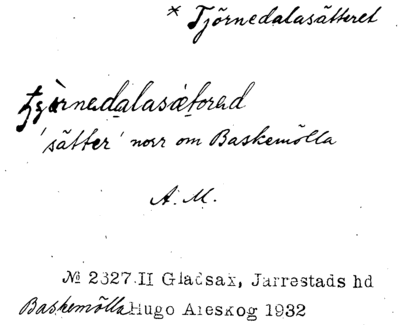 * Tjörnedalasätteret
'sätter' norr om Baskemölla
A. M.
№ 2327.II Gladsax, Järrestads hd
Baskemölla Hugo Areskog 1932